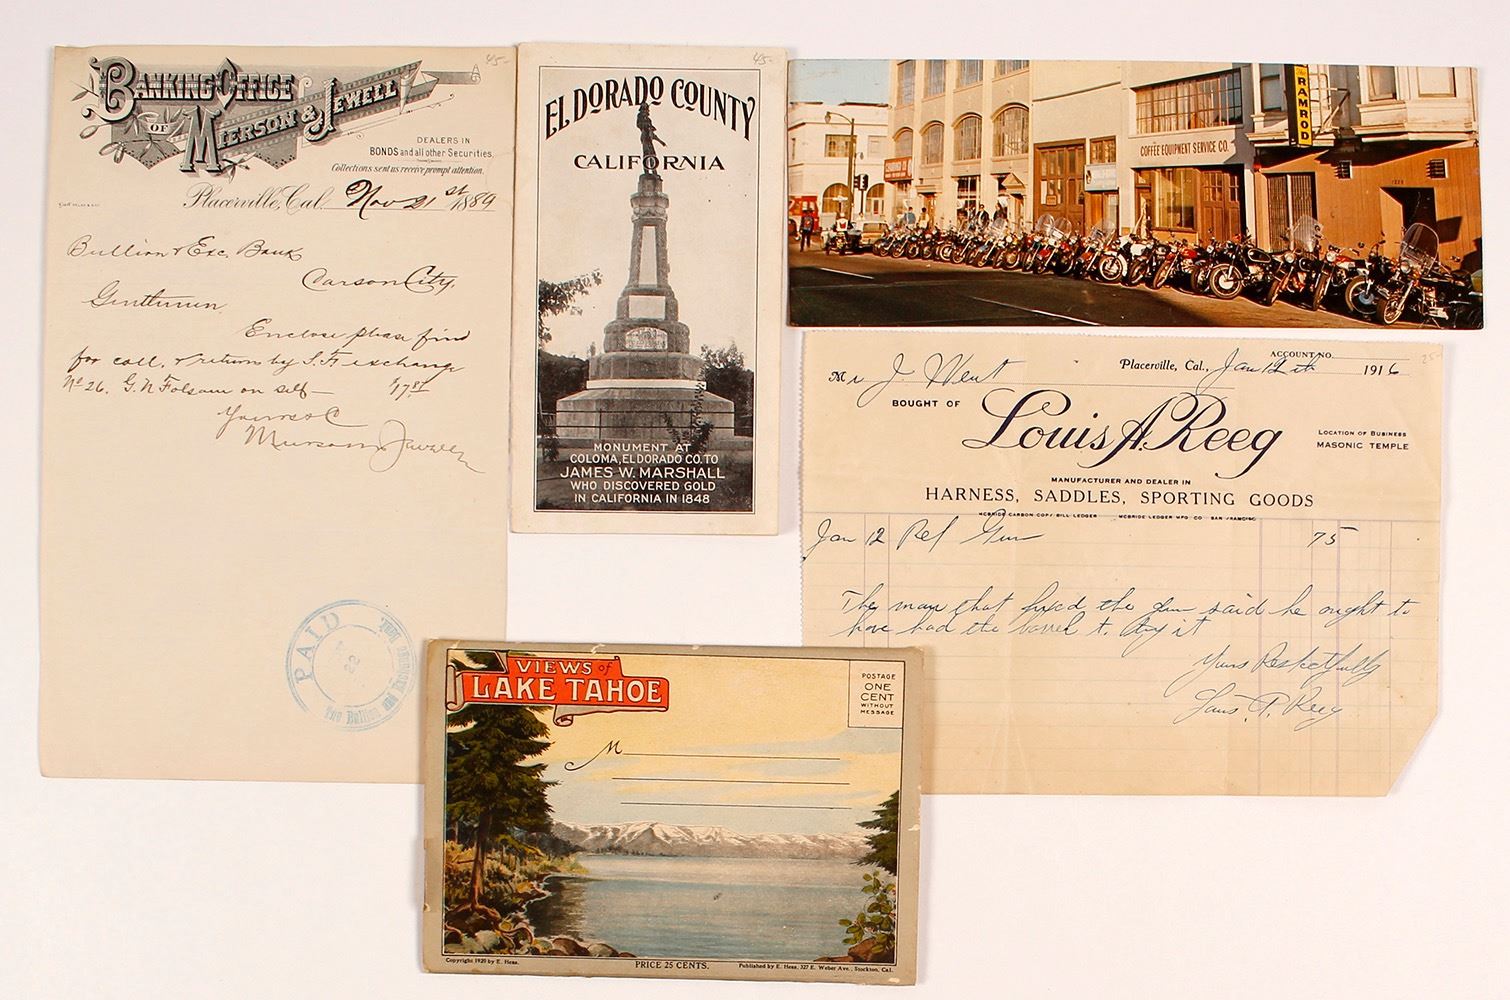 45-
BANKING OFFICE
OF
MIERSON & JEWELL
DEALERS IN
BONDS and all other Securities.
Collections sent us receive prompt attention.
Placerville, Cal. Nov 21st 1889
Bullion & Exc. Bank
Carson City,
Gentlemen
Enclose please find
for coll. & return by S. F. exchange
No 26. G. N. Folsom on self —
Yours &C
Mierson & Jewell
PAID
22
45-
EL DORADO COUNTY
CALIFORNIA
MONUMENT AT
COLOMA, ELDORADO CO. TO
JAMES W. MARSHALL
WHO DISCOVERED GOLD
IN CALIFORNIA IN 1848
COFFEE EQUIPMENT SERVICE CO.
The RAMROD
25-
ACCOUNT NO.
Mr J. Went Placerville, Cal., Jan 12th 1916
BOUGHT OF
Louis A. Reeg
LOCATION OF BUSINESS
MASONIC TEMPLE
MANUFACTURER AND DEALER IN
HARNESS, SADDLES, SPORTING GOODS
MCBRIDE CARBON COPY BILL LEDGER MCBRIDE LEDGER MFG CO SAN FRANCISCO
Jan 12 Rep Gun 75
The man that fixed the gun said he ought to
have had the barrel to try it
Yours Respectfully
VIEWS of
LAKE TAHOE
POSTAGE
ONE
CENT
WITHOUT
MESSAGE
M
Copyright 1920 by E. Hess.
PRICE 25 CENTS.
Published by E. Hess, 327 E. Weber Ave., Stockton, Cal.